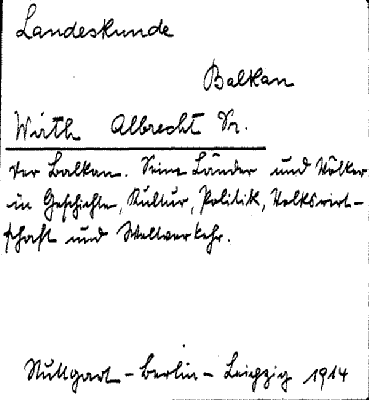 Landeskunde
Balkan
Wirth Albrecht Dr.
Der Balkan. Seine Länder und Völker
in Geschichte, Kultur, Politik, Volkswirt-
schaft und Weltverkehr.
Stuttgart - Berlin - Leipzig 1914